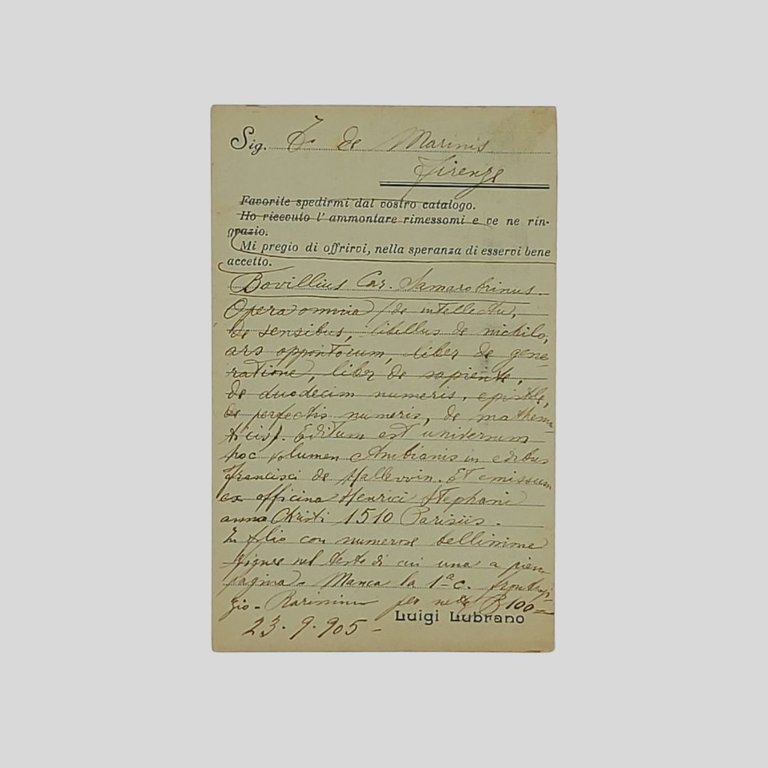 Sig. T. de Marinis
Firenze
Favorite spedirmi dal vostro catalogo.
Ho ricevuto l'ammontare rimessomi e ve ne rin-
grazio.
Mi pregio di offrirvi, nella speranza di esservi bene
accetto.
Bovillius Car. Samarobrinus.
Opera omnia (de intellectu,
de sensibus, libellus de nichilo,
ars oppositorum, liber de gene-
ratione, liber de sapiente,
de duodecim numeris, epistole,
de perfectis numeris, de mathema-
ticis). Editum est universum
hoc volumen Ambianis in edibus
Francisci de Hallewin. Et emissum
ex officina Henrici Stephani
anno Christi 1510 Parisiis.
In folio con numerose bellissime
figure nel testo di cui una a piena
pagina. Manca la 1ª c. frontespi-
zio - Rarissimo per nette 100=
Luigi Lubrano
23.9.905-